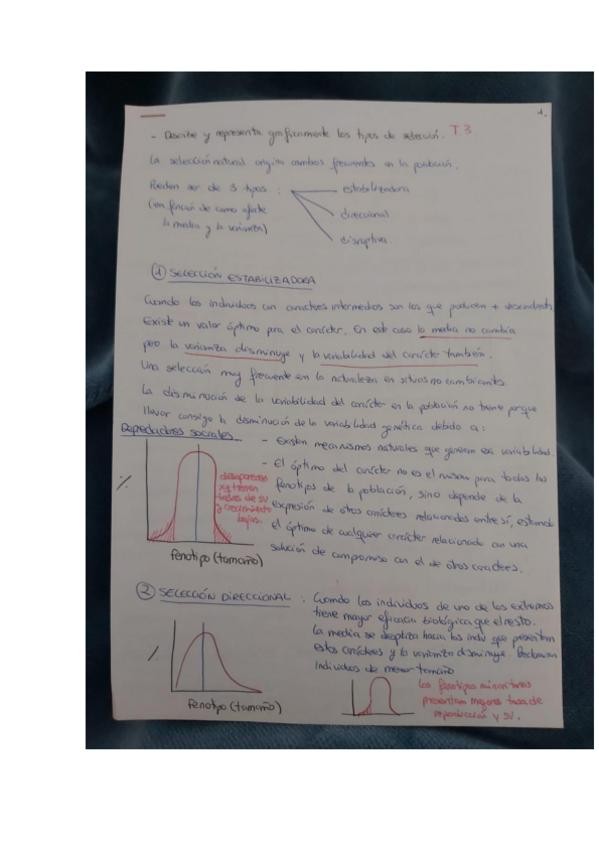 1.
- Describe y representa graficamente los tipos de selección. T3
La selección natural origina cambios frecuentes en la población.
Pueden ser de 3 tipos :
(en función de como afecte
la media y la varianza)
estabilizadora
direccional
disruptiva.
① SELECCIÓN ESTABILIZADORA
Cuando los individuos con caracteres intermedios son los que producen + descendientes
Existe un valor óptimo para el carácter. En este caso la media no cambia
pero la varianza disminuye y la variabilidad del carácter también.
Una selección muy frecuente en la naturaleza en situaciones no cambiantes.
La disminución de la variabilidad del carácter en la población no tiene porque
llevar consigo la disminución de la variabilidad genética debido a:
- Existen mecanismos naturales que generan esa variabilidad.
- El óptimo del carácter no es el mismo para todos los
fenotipos de la población, sino depende de la
expresión de otros caracteres relacionados entre sí, estando
el óptimo de cualquier carácter relacionado con una
solución de compromiso con el de otros caracteres.
Reproductores sociales
%
desaparecen
xq tienen
tasas de SV
y crecimiento
bajas.
fenotipo (tamaño)
② SELECCIÓN DIRECCIONAL : Cuando los individuos de uno de los extremos
tiene mayor eficacia biológica que el resto.
La media se desplaza hacia los indv que presentan
estos caracteres y la varianza disminuye.
Individuos de menor tamaño
%
Fenotipo (tamaño)
Los fenotipos minoritarios
presentan mejores tasa de
reproducción y SV.